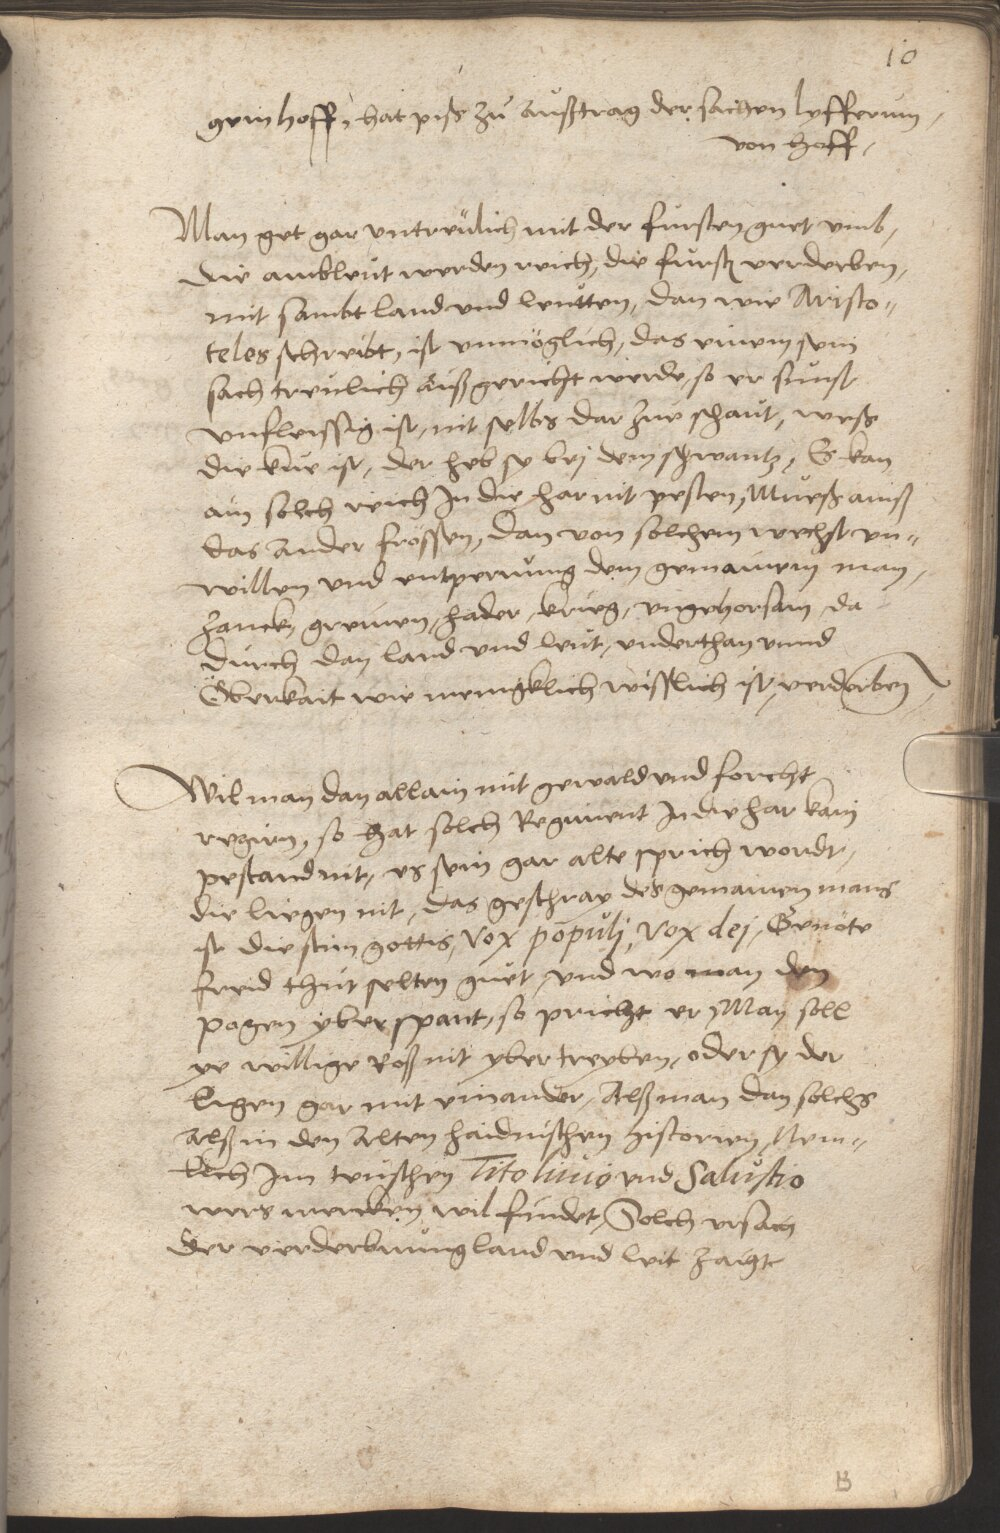 10
gein hoff, hat piß zu außtrag der sachen lyfferung
von hoff,
Man get gar untreülich mit der fürsten guet umb,
die ambleüt werden reich, die fürsten verderben,
mit sambt land und leütten, dan wie Aristo„
teles schreibt, ist unmöglich, das einem sein
sach treülich außgericht werde, so er sunst
unfleissig ist, nit selbs dar zue schaut, weß
die kue ist, der heb sy bej dem schwantz, Es kan
ain solch reich In die har nit pesten, Mueß ainß
das ander fressen, dan von solchem wechst un„
willen und entperung dem gemainem man,
zanck, greinen, hader, krieg, ungehorsam, da
durch dan land und leüt, underthan unnd
Öberkait wie menigklich wisslich ist, verderben
Wil man dan allain mit gewald und forcht
regirn, so hat solch Regiment In die har kain
pestand nit, es sein gar alte sprich wordt,
die liegen nit, das geschray des gemainen mans
ist die stim gottes, Vox populj, Vox dej, Genöte
freid thut selten guet, und wo man den
pogen yberspant, so pricht er, Man soll
ye willige Roß nit ybertreyben, oder sy der
ligen gar mit einander, Alß man dan solchs
Alß in den Alten haidnischen historien, Nem„
lich Im teütschen Tito liuio und Salustio
wers mercken wil findet, Solch ursach
der verderbnung land und leit zaigt
B